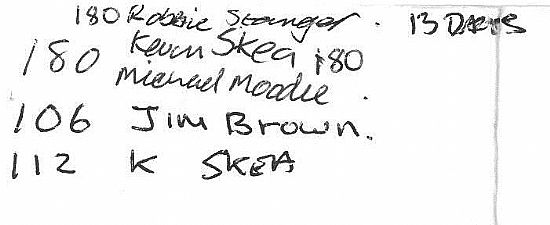 180 Robbie Stanger. 13 DARTS
180 Kevin Skea 180
Michael Moodie.
106 Jim Brown.
112 K SKEA